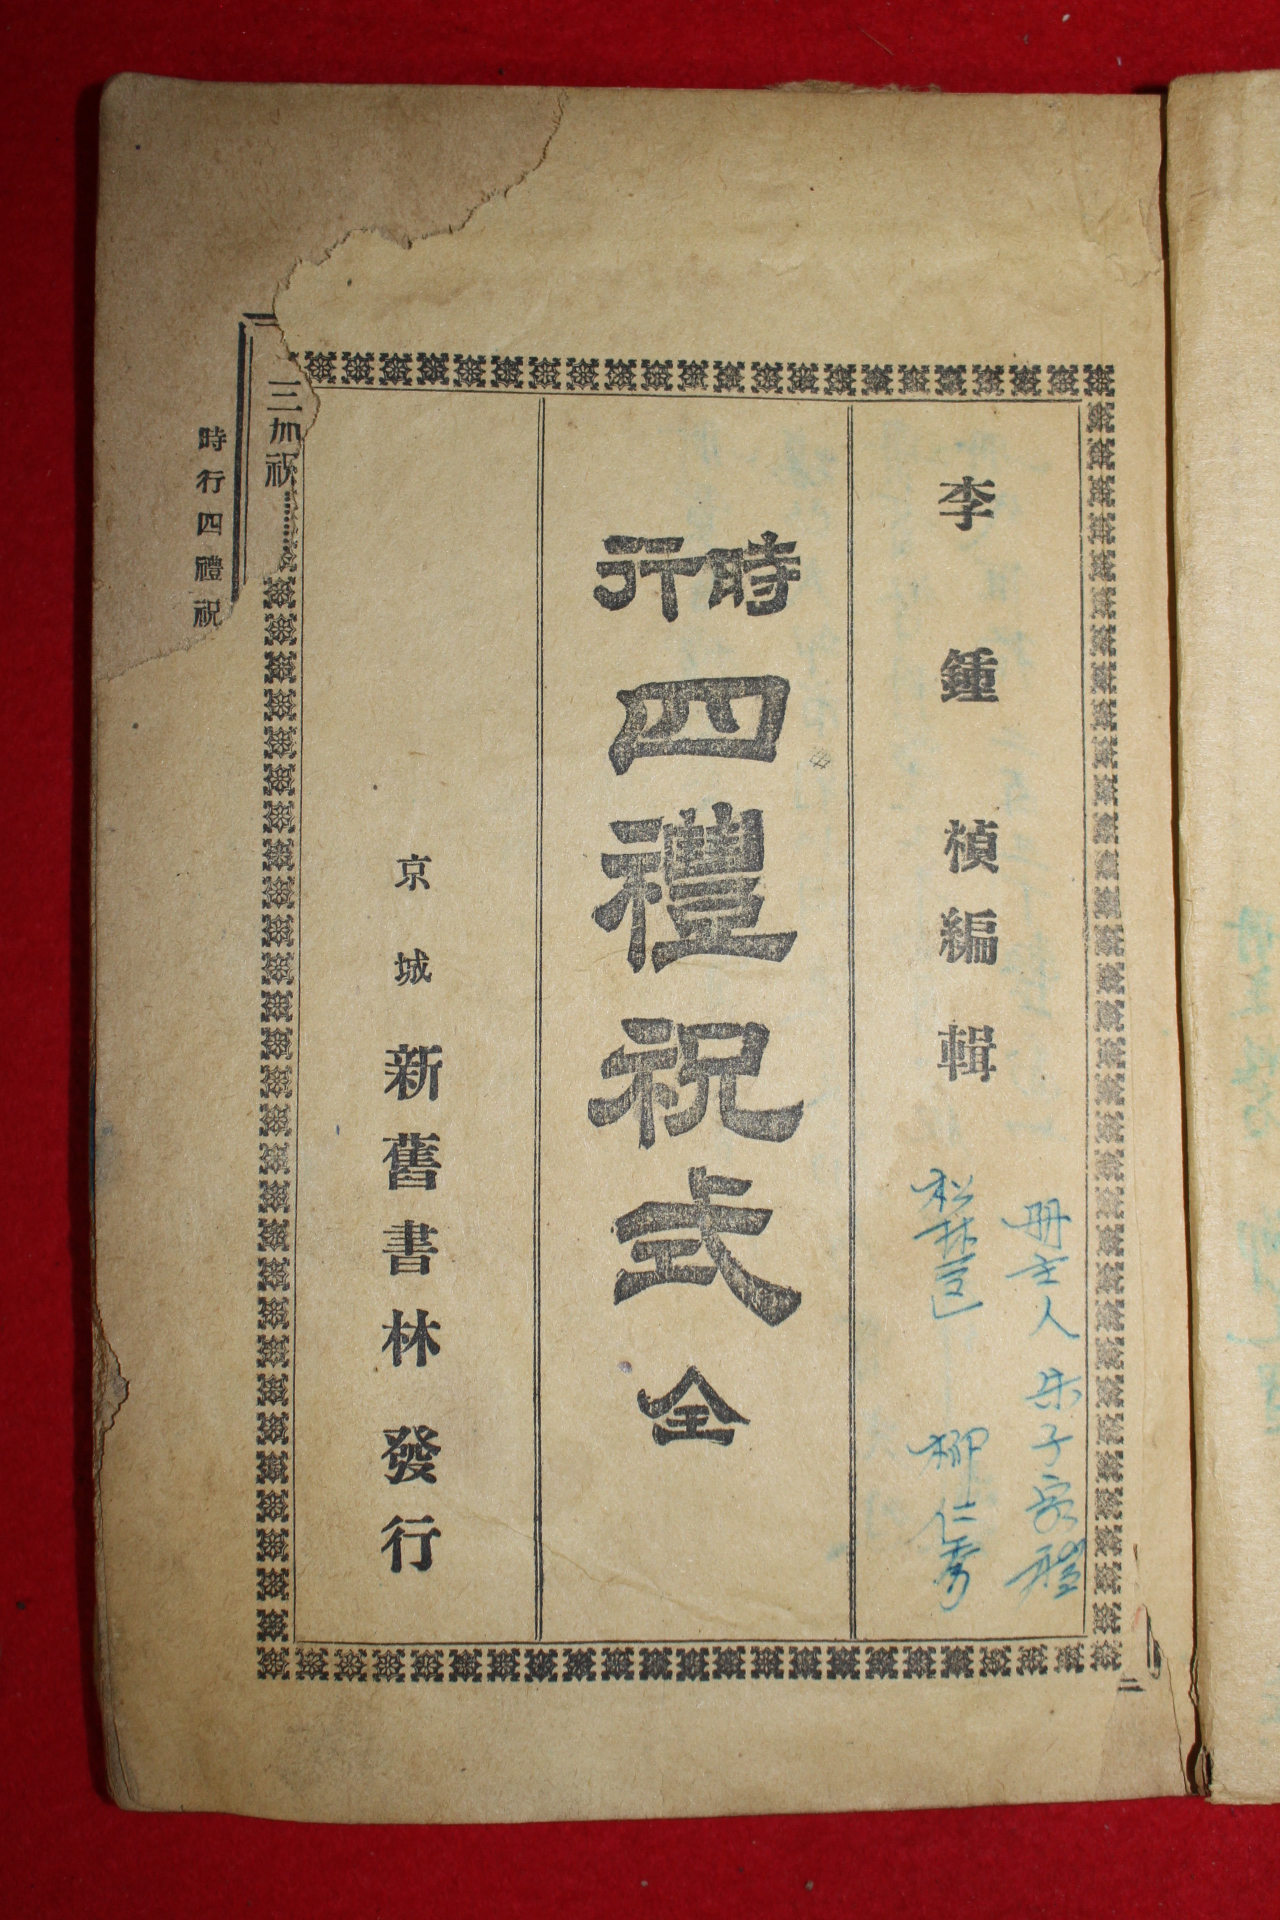 李鍾楨編輯
冊主人 朱子家禮
松林
柳仁秀
時行
四禮祝式 全
京城 新舊書林 發行
三加祝
時行四禮祝
二